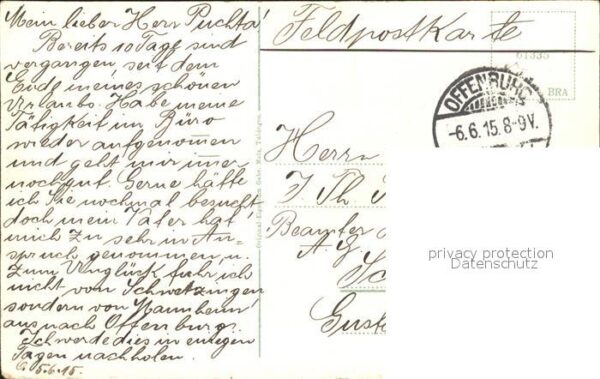 Mein lieber Herr Puchta!
Bereits 10 Tage sind
vergangen seit dem
Ende meines schönen
Urlaubs. Habe meine
Tätigkeit im Büro
wieder aufgenom̅en
und geht mir im̅er
noch gut. Gerne hätte
ich Sie nochmal besucht
doch mein Vater hat
mich zu sehr in An-
spruch genommen, u.
zum Unglück fuhr ich
nicht von Schwetzingen
sondern von Mannheim
aus nach Offenburg.
Ich werde dies in einigen
Tagen nachholen.
5.6.15.
Feldpostkarte
61335
BRA
OFFENBURG
-6.6.15.8-9V.
Herrn
J Th
Beamter
Gust
privacy protection
Datenschutz